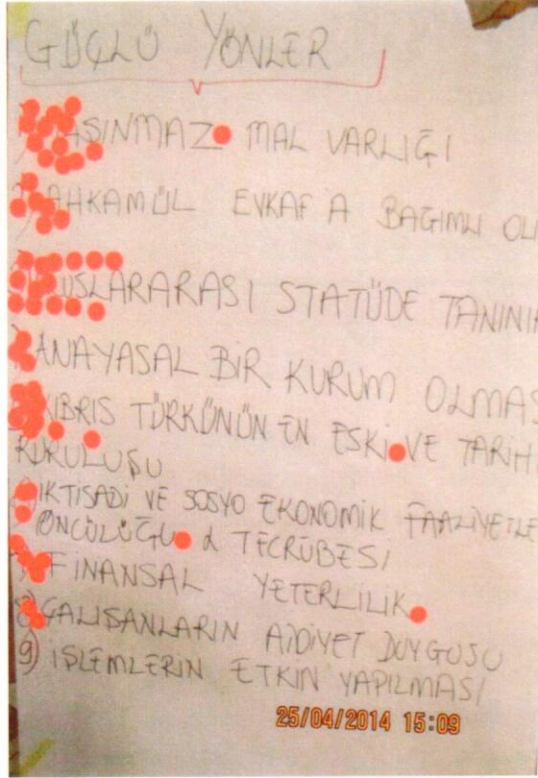 GÜÇLÜ YÖNLER
AŞINMAZ MAL VARLIĞI
AHKAMÜL EVKAF'A BAĞIMLI OL
USLARARASI STATÜDE TANINI
ANAYASAL BİR KURUM OLMAS
KIBRIS TÜRKÜNÜN EN ESKİ VE TARİH
KURULUŞU
İKTİSADİ VE SOSYO EKONOMİK FAALİYETLE
ÖNCÜLÜĞÜ & TECRÜBESİ
FİNANSAL YETERLİLİK
8) ÇALIŞANLARIN AİDİYET DUYGUSU
9) İŞLEMLERİN ETKİN YAPILMASI
25/04/2014 15:09